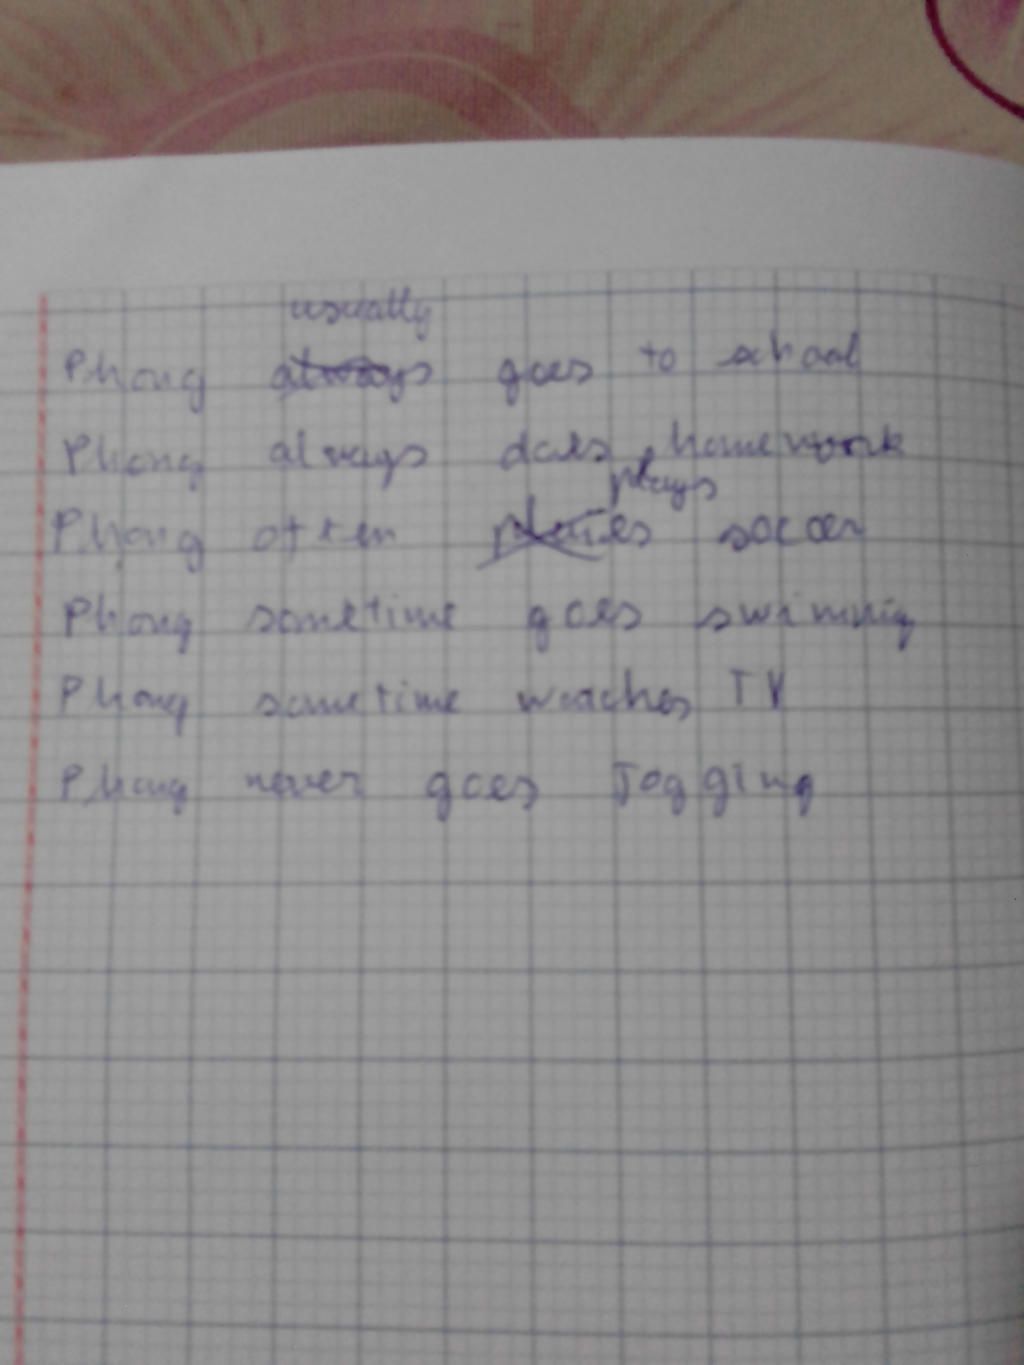 usually
Phong always goes to school
Phong always does homework
plays
Phong often plaies soccer
Phong sometime goes swimming
Phong sometime watches TV
Phong never goes Jogging